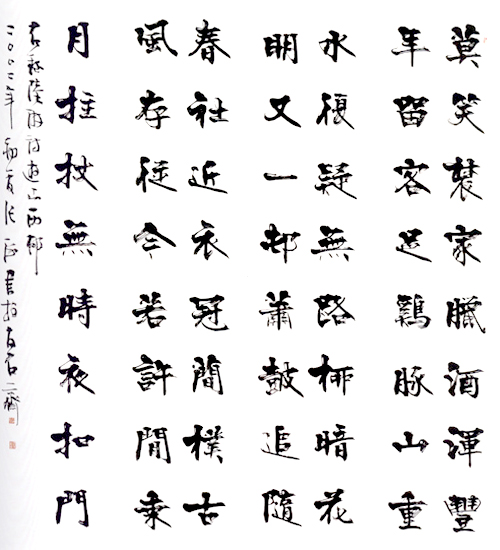 莫笑農家臘酒渾豐
年留客足鷄豚山重
水復疑無路柳暗花
明又一邨蕭鼓追隨
春社近衣冠簡樸古
風存從今若許閒乘
月拄杖無時夜扣門
右録陸游詩遊山西邨
二〇〇二年初夏